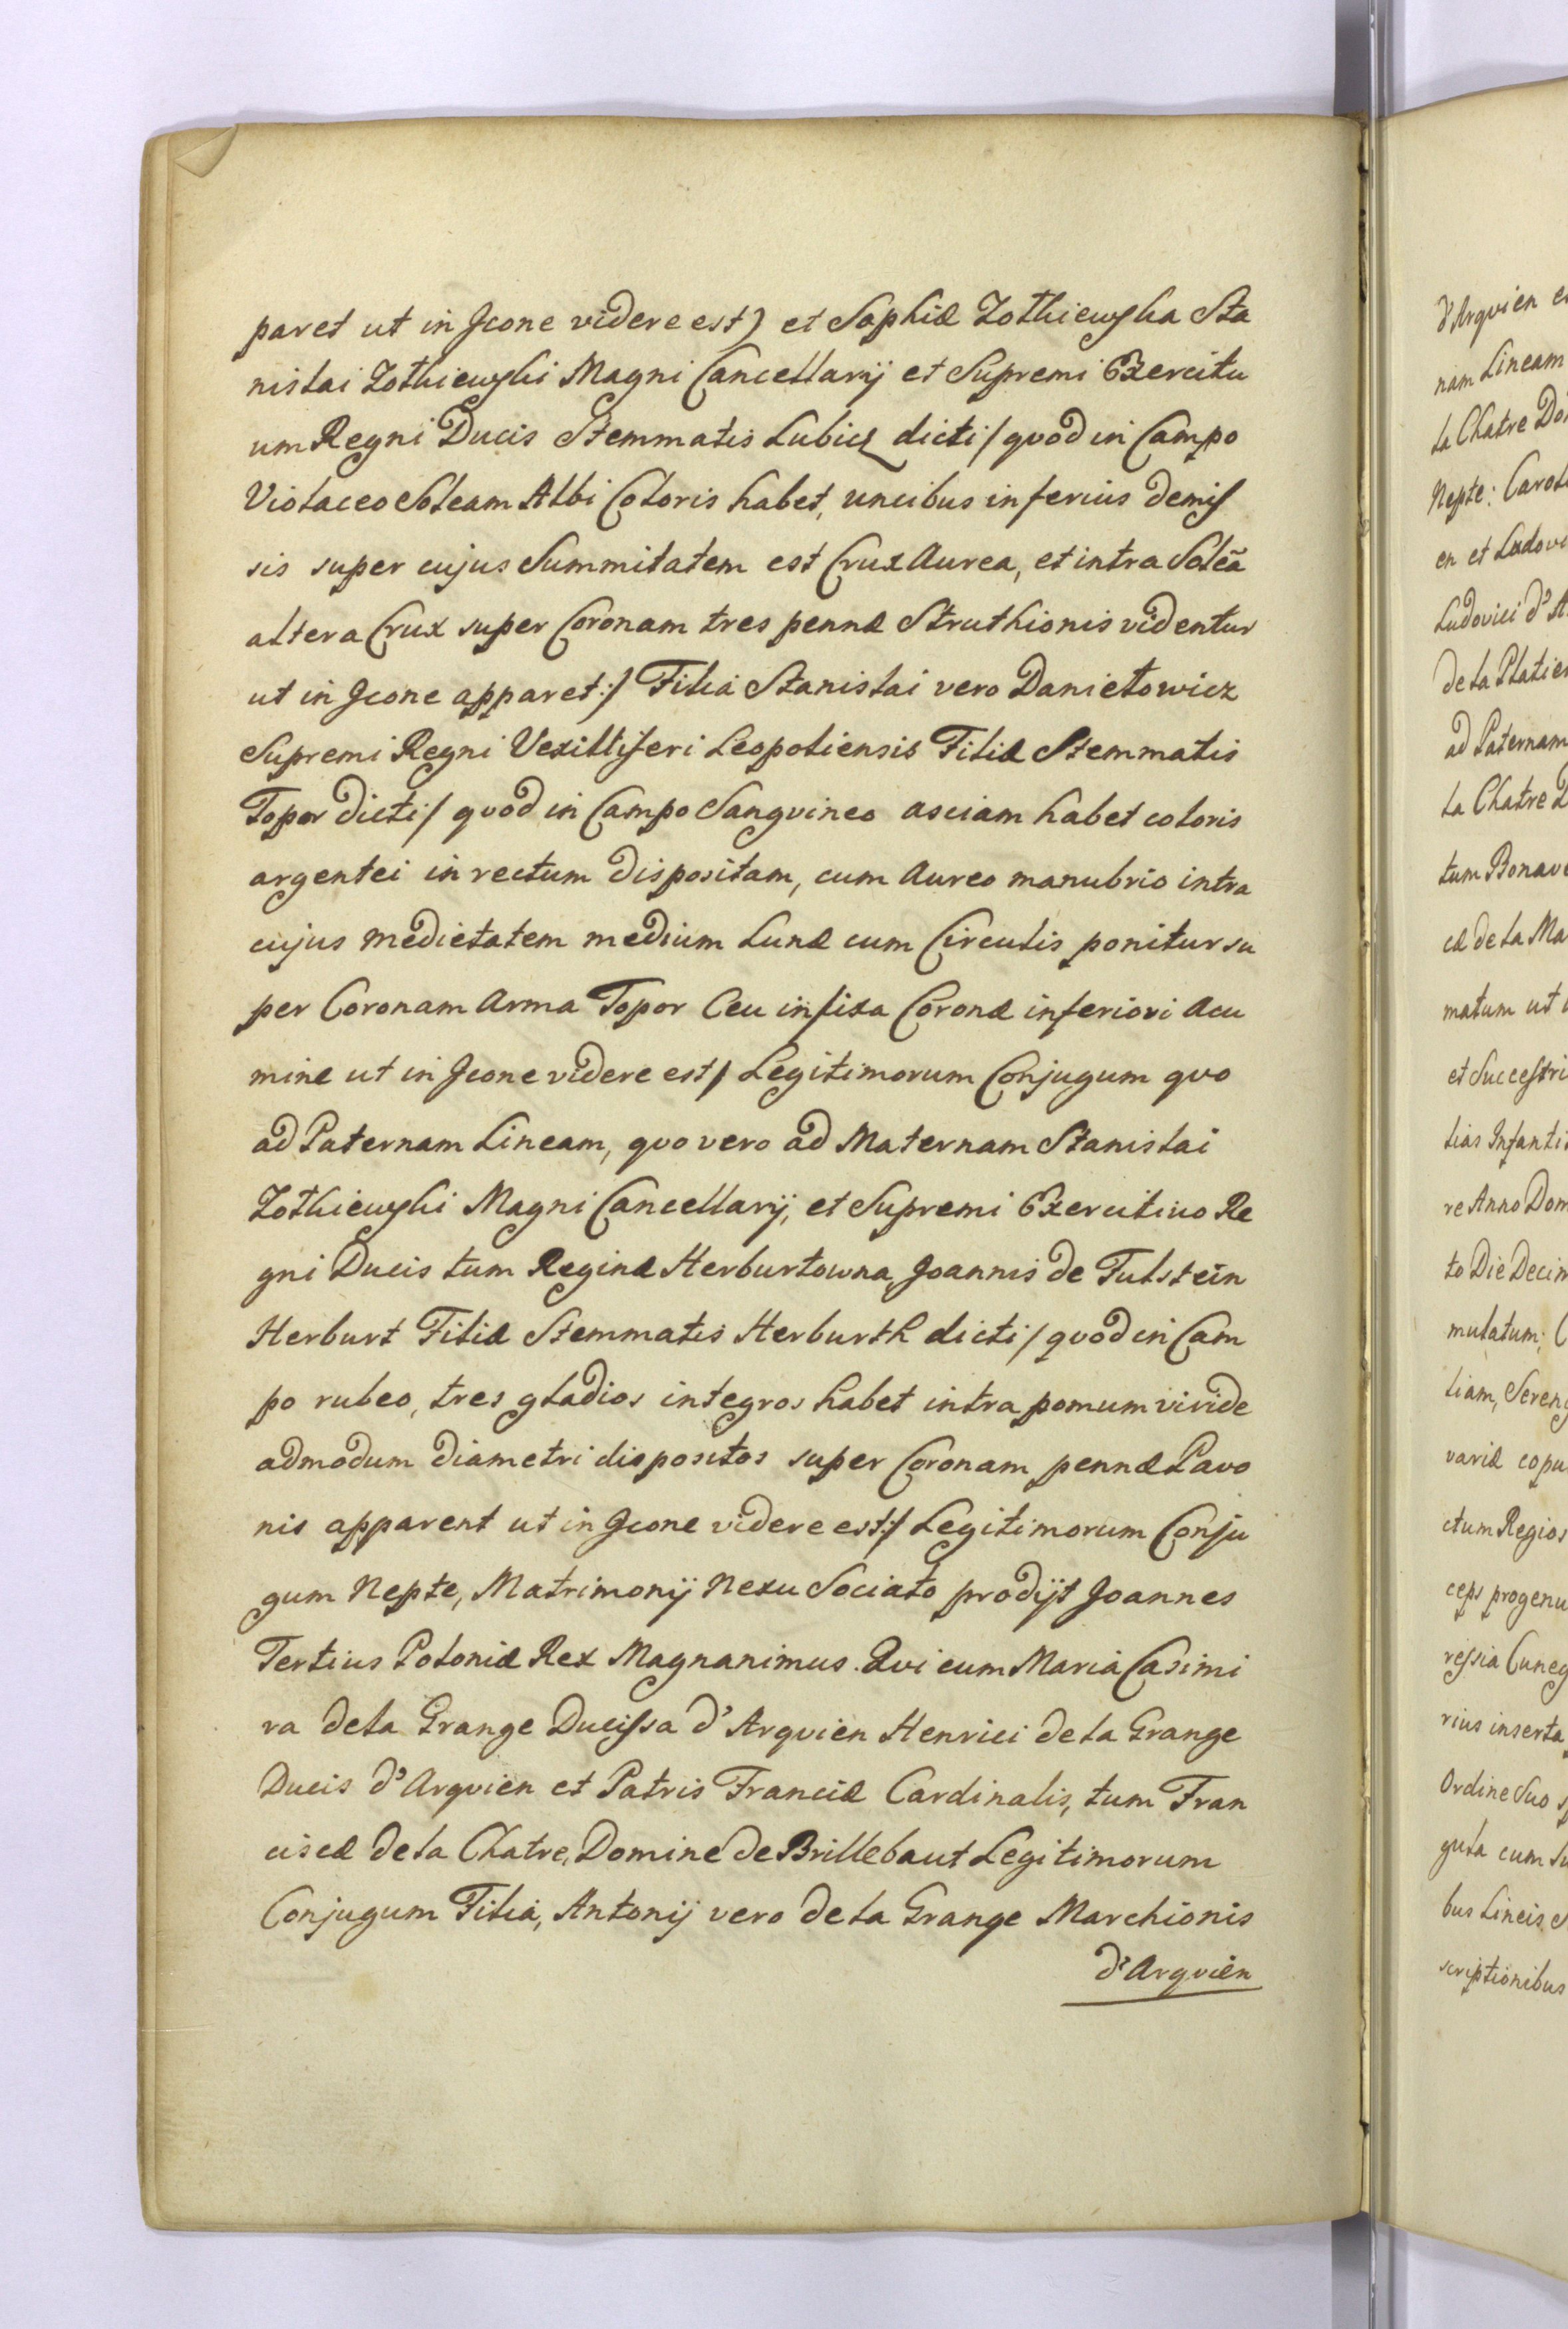 paret ut in Icone videre est) et Sophiæ Zolkiewska Sta
nislai Zolkiewski Magni Cancellarij et Supremi Exercitu
um Regni Ducis Stemmatis Lubicz dicti / quod in Campo
Violaceo Soleam Albi Coloris habet, uncibus inferius demis
sis super cujus Summitatem est Crux Aurea, et intra Soleã
altera Crux super Coronam tres pennæ Struthionis videntur
ut in Icone apparet:/ Filia Stanislai vero Danielowicz
Supremi Regni Vexilliferi Leopoliensis Filiæ Stemmatis
Topor dicti / quod in Campo Sangvineo asciam habet coloris
argentei in rectum dispositam, cum Aureo manubrio intra
cujus medietatem medium Lunæ cum Circulis ponitur su
per Coronam Arma Topor Ceu infixa Coronæ inferiori Acu
mine ut in Icone videre est / Legitimorum Conjugum quo
ad Paternam Lineam, quo vero ad Maternam Stanislai
Zolkiewski Magni Cancellarij, et Supremi Exercituo Re
gni Ducis tum Reginæ Herburtowna, Joannis de Fulstein
Herburt Filiæ Stemmatis Herburth dicti / quod in Cam
po rubeo, tres gladios integros habet intra pomum viride
admodum diametri dispositos super Coronam pennæ Pavo
nis apparent ut in Icone videre est:/ Legitimorum Conju
gum Nepte, Matrimonij Nexu Sociato prodijt Joannes
Tertius Poloniæ Rex Magnanimus. Qui cum Maria Casimi
ra de la Grange Ducissa d'Arqvien Henrici de la Grange
Ducis d'Arqvien et Patris Franciæ Cardinalis, tum Fran
ciscæ de la Chatre, Domine de Brillebaut Legitimorum
Conjugum Filia, Antonij vero de la Grange Marchionis
d'Arqvien
d'Arqvien
nam Lineam
la Chatre
Nepte: Carol
en et Ludovi
Ludovici d'A
de la Platier
ad Paternam
la Chatre
tum Bonav
cæ de la Ma
matum ut
et Successri
lias Infanti
re Anno Dom
to Die Decim
mulatum;
liam, Seren
variæ copu
ctum Regios
ceps progenu
ressia Cuneg
rius inserta
Ordine Suo
gula cum Su
bus Lineis
scriptionibus